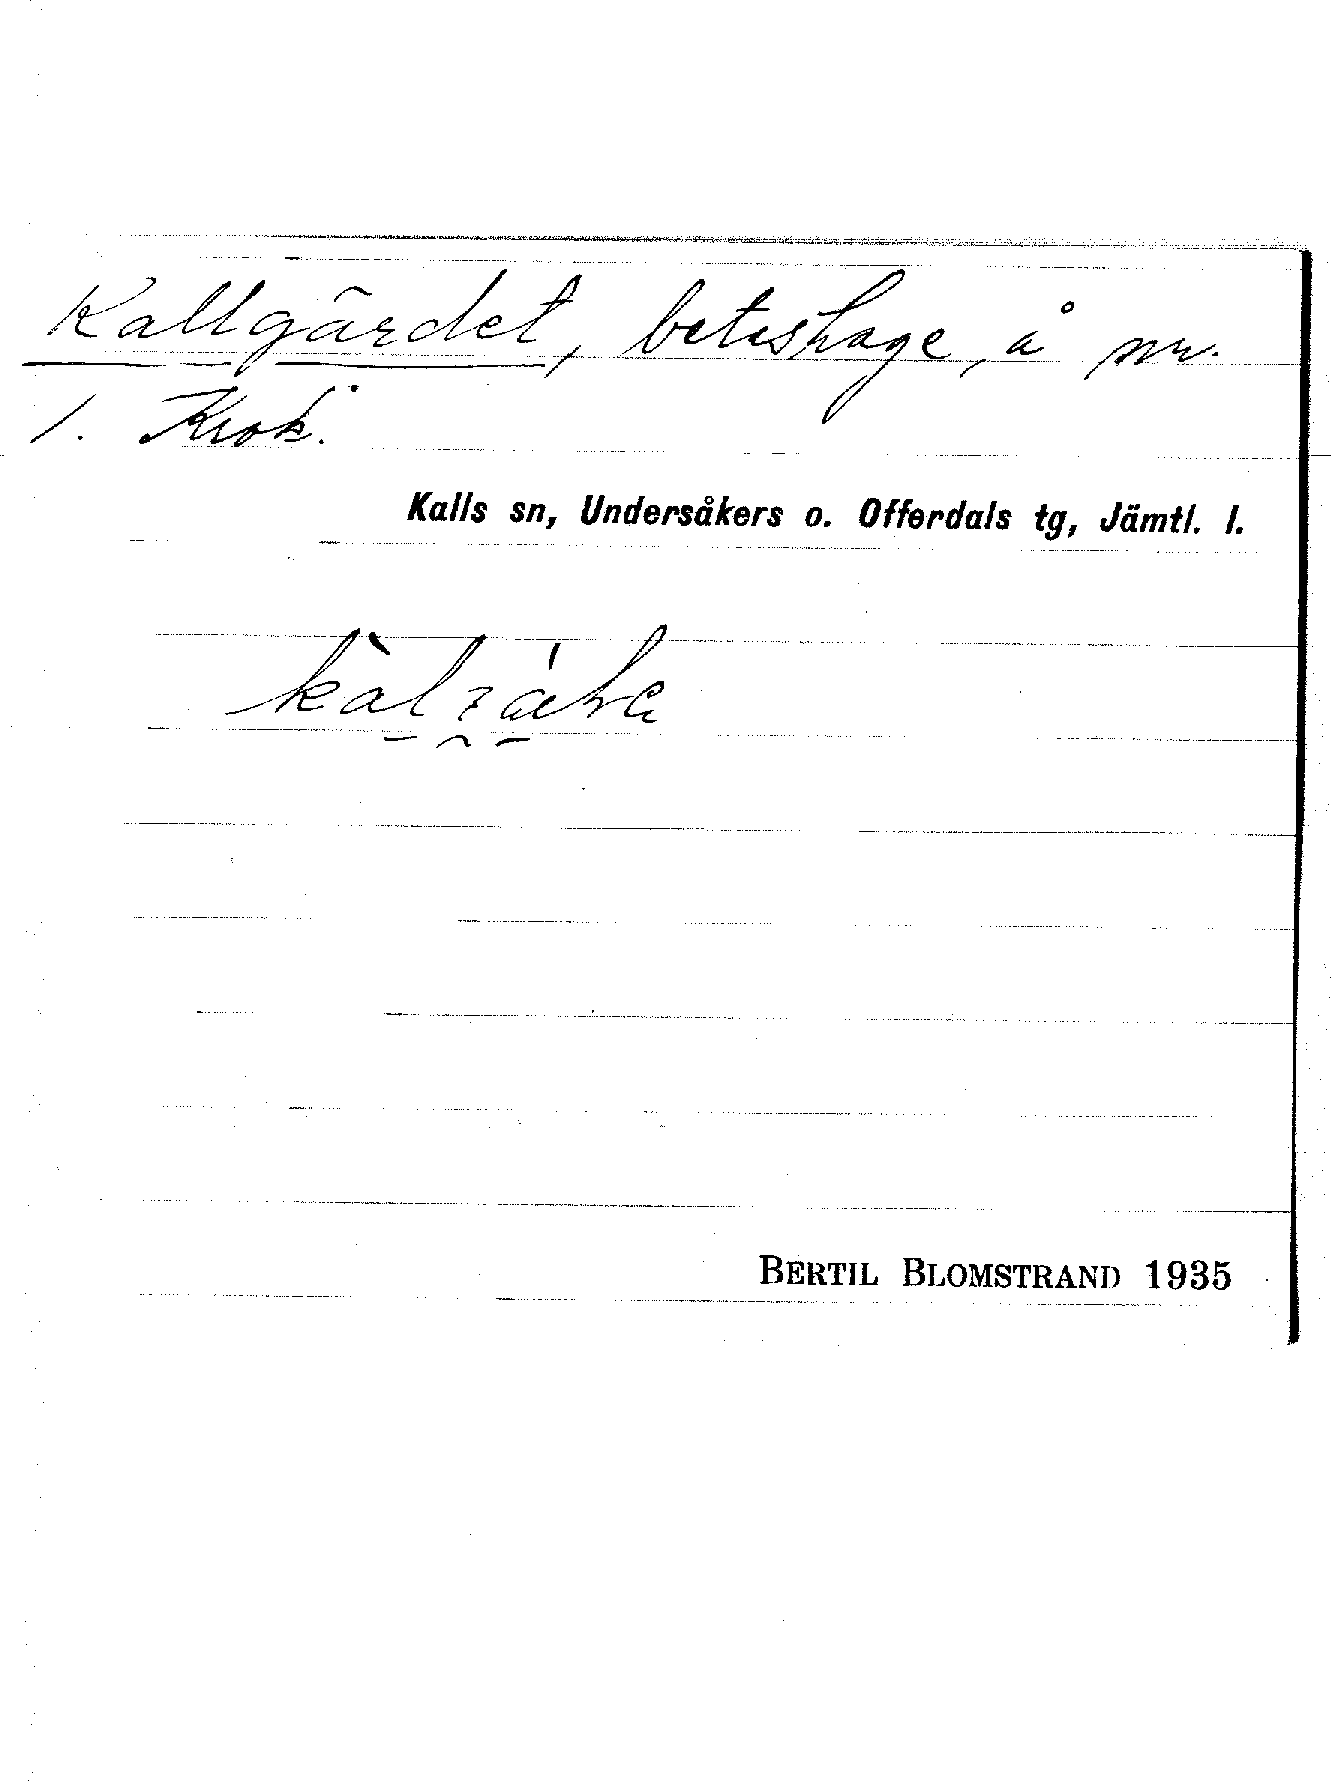 Kallgärdet, beteshage, å nr.
1. Krok.
Kalls sn, Undersåkers o. Offerdals tg, Jämtl. l.
BERTIL BLOMSTRAND 1935